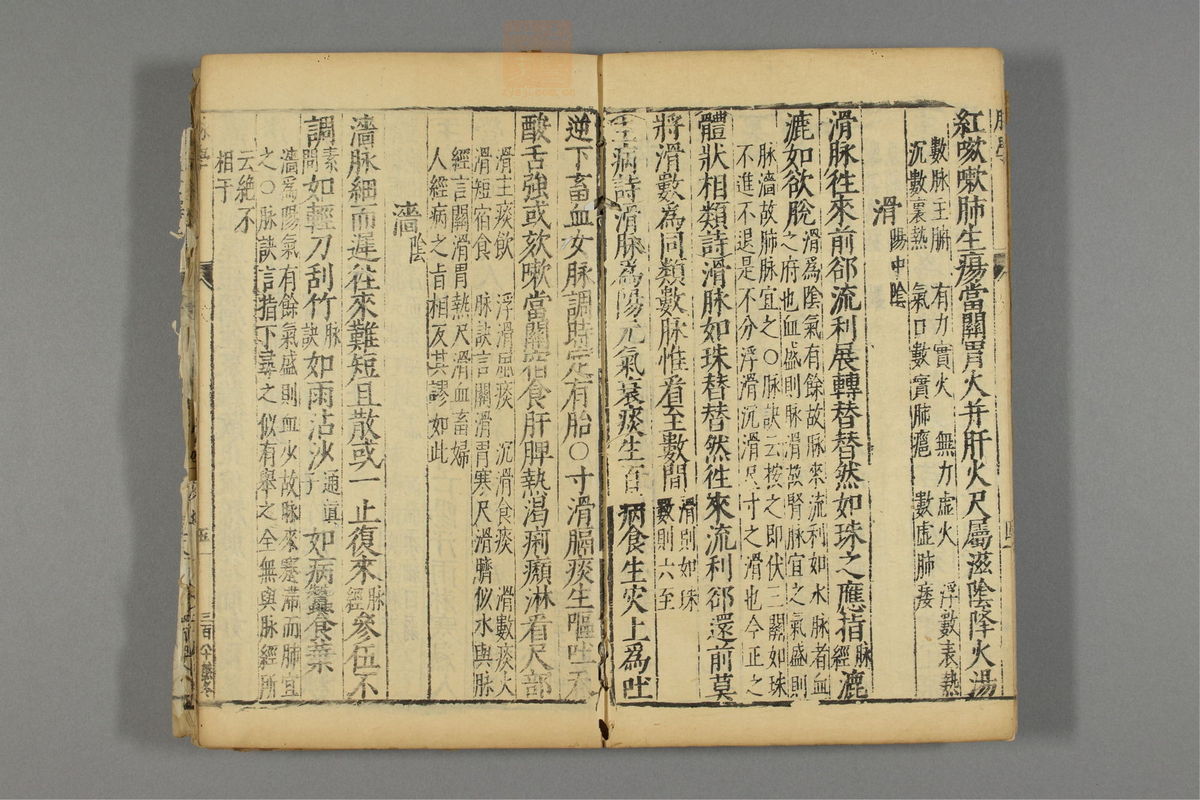 紅嗽嗽肺生瘍當關胃火并肝火尺屬滋陰降火湯
數脉主腑 有力實火 無力虛火 浮數表熱
沉數裏熱 氣口數實肺癰 數虛肺痿
滑 陽中陰
滑脉徃來前郤流利展轉替替然如珠之應指脉經漉
漉如欲脫滑爲陰氣有餘故脉來流利如水脉者血之府也血盛則脉滑故腎脉宜之氣盛則
脉濇故肺脉宜之○脉訣云按之即伏三關如珠
不進不退是不分浮滑沉滑尺寸之滑也今正之
體狀相類詩滑脉如珠替替然徃來流利郤還前莫
將滑數爲同類數脉惟看至數間滑則如珠數則六至
主病詩滑脉爲陽元氣衰痰生百病食生灾上爲吐
逆下畜血女脉調時定有胎○寸滑膈痰生嘔吐吞
酸舌強或欬嗽當關宿食肝脾熱渴痢㿗淋看尺部
滑主痰飲 浮滑風痰 沉滑食痰 滑數痰火
滑短宿食 脉訣言關滑胃寒尺滑臍似水與脉
經言關滑胃熱尺滑血畜婦
人經病之旨相反其謬如此
濇 陰
濇脉細而遲徃來難短且散或一止復來脉經參伍不
調素問如輕刀刮竹脉訣如雨沾沙通眞子如病蠶食葉
濇爲陽氣有餘氣盛則血少故脉來蹇滯而肺宜
之○脉訣言指下尋之似有舉之全無與脉經所
云絶不
相于